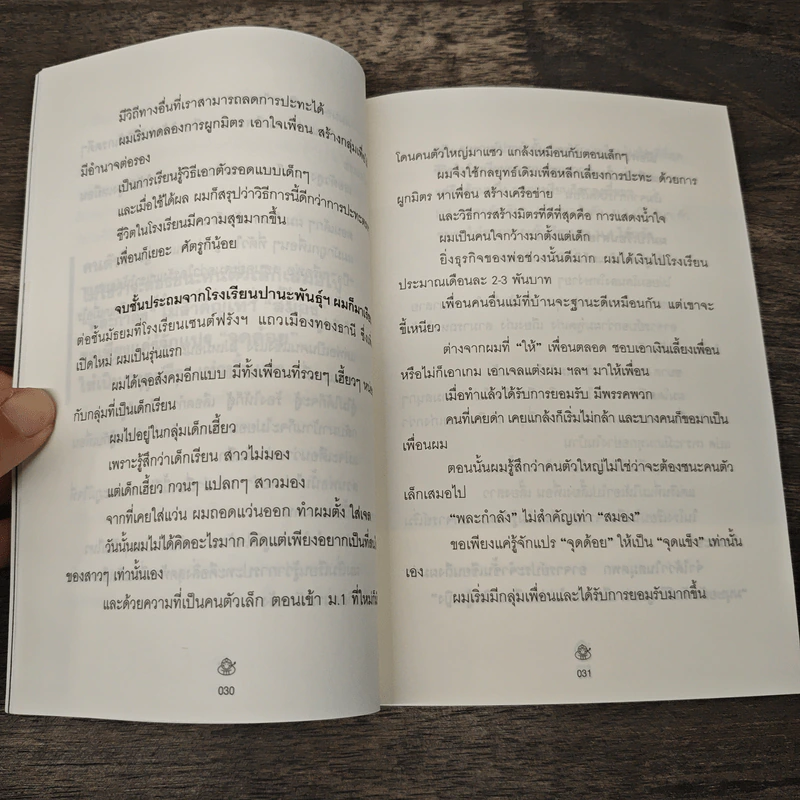 มีวิถีทางอื่นที่เราสามารถลดการปะทะได้
ผมเริ่มทดลองการผูกมิตร เอาใจเพื่อน สร้างกลุ่มเพื่อ
มีอำนาจต่อรอง
เป็นการเรียนรู้วิธีเอาตัวรอดแบบเด็กๆ
และเมื่อใช้ได้ผล ผมก็สรุปว่าวิธีการนี้ดีกว่าการปะทะ
ชีวิตในโรงเรียนมีความสุขมากขึ้น
เพื่อนก็เยอะ ศัตรูก็น้อย
จบชั้นประถมจากโรงเรียนปานะพันธุ์ฯ ผมก็มา
ต่อชั้นมัธยมที่โรงเรียนเซนต์ฟรังฯ แถวเมืองทองธานี
เปิดใหม่ ผมเป็นรุ่นแรก
ผมได้เจอสังคมอีกแบบ มีทั้งเพื่อนที่รวยๆ เฮี้ยวๆ
กับกลุ่มที่เป็นเด็กเรียน
ผมไปอยู่ในกลุ่มเด็กเฮี้ยว
เพราะรู้สึกว่าเด็กเรียน สาวไม่มอง
แต่เด็กเฮี้ยว กวนๆ แปลกๆ สาวมอง
จากที่เคยใส่แว่น ผมถอดแว่นออก ทำผมตั้ง ใส่เจล
วันนั้นผมไม่ได้คิดอะไรมาก คิดแต่เพียงอยากเป็นที่
ของสาวๆ เท่านั้นเอง
และด้วยความที่เป็นคนตัวเล็ก ตอนเข้า ม.1 ที่ใหม่
030
โดนคนตัวใหญ่มาแซว แกล้งเหมือนกับตอนเล็กๆ
ผมจึงใช้กลยุทธ์เดิมเพื่อหลีกเลี่ยงการปะทะ ด้วยการ
ผูกมิตร หาเพื่อน สร้างเครือข่าย
และวิธีการสร้างมิตรที่ดีที่สุดคือ การแสดงน้ำใจ
ผมเป็นคนใจกว้างมาตั้งแต่เด็ก
ยิ่งธุรกิจของพ่อช่วงนั้นดีมาก ผมได้เงินไปโรงเรียน
ประมาณเดือนละ 2-3 พันบาท
เพื่อนคนอื่นแม้ที่บ้านจะฐานะดีเหมือนกัน แต่เขาจะ
ขี้เหนียว
ต่างจากผมที่ “ให้” เพื่อนตลอด ชอบเอาเงินเลี้ยงเพื่อน
หรือไม่ก็เอาเกม เอาเจลแต่งผม ฯลฯ มาให้เพื่อน
เมื่อทำแล้วได้รับการยอมรับ มีพรรคพวก
คนที่เคยด่า เคยแกล้งก็เริ่มไม่กล้า และบางคนก็ขอมาเป็น
เพื่อนผม
ตอนนั้นผมรู้สึกว่าคนตัวใหญ่ไม่ใช่ว่าจะต้องชนะคนตัว
เล็กเสมอไป
“พละกำลัง” ไม่สำคัญเท่า “สมอง”
ขอเพียงแค่รู้จักแปร “จุดด้อย” ให้เป็น “จุดแข็ง” เท่านั้น
เอง
ผมเริ่มมีกลุ่มเพื่อนและได้รับการยอมรับมากขึ้น
031